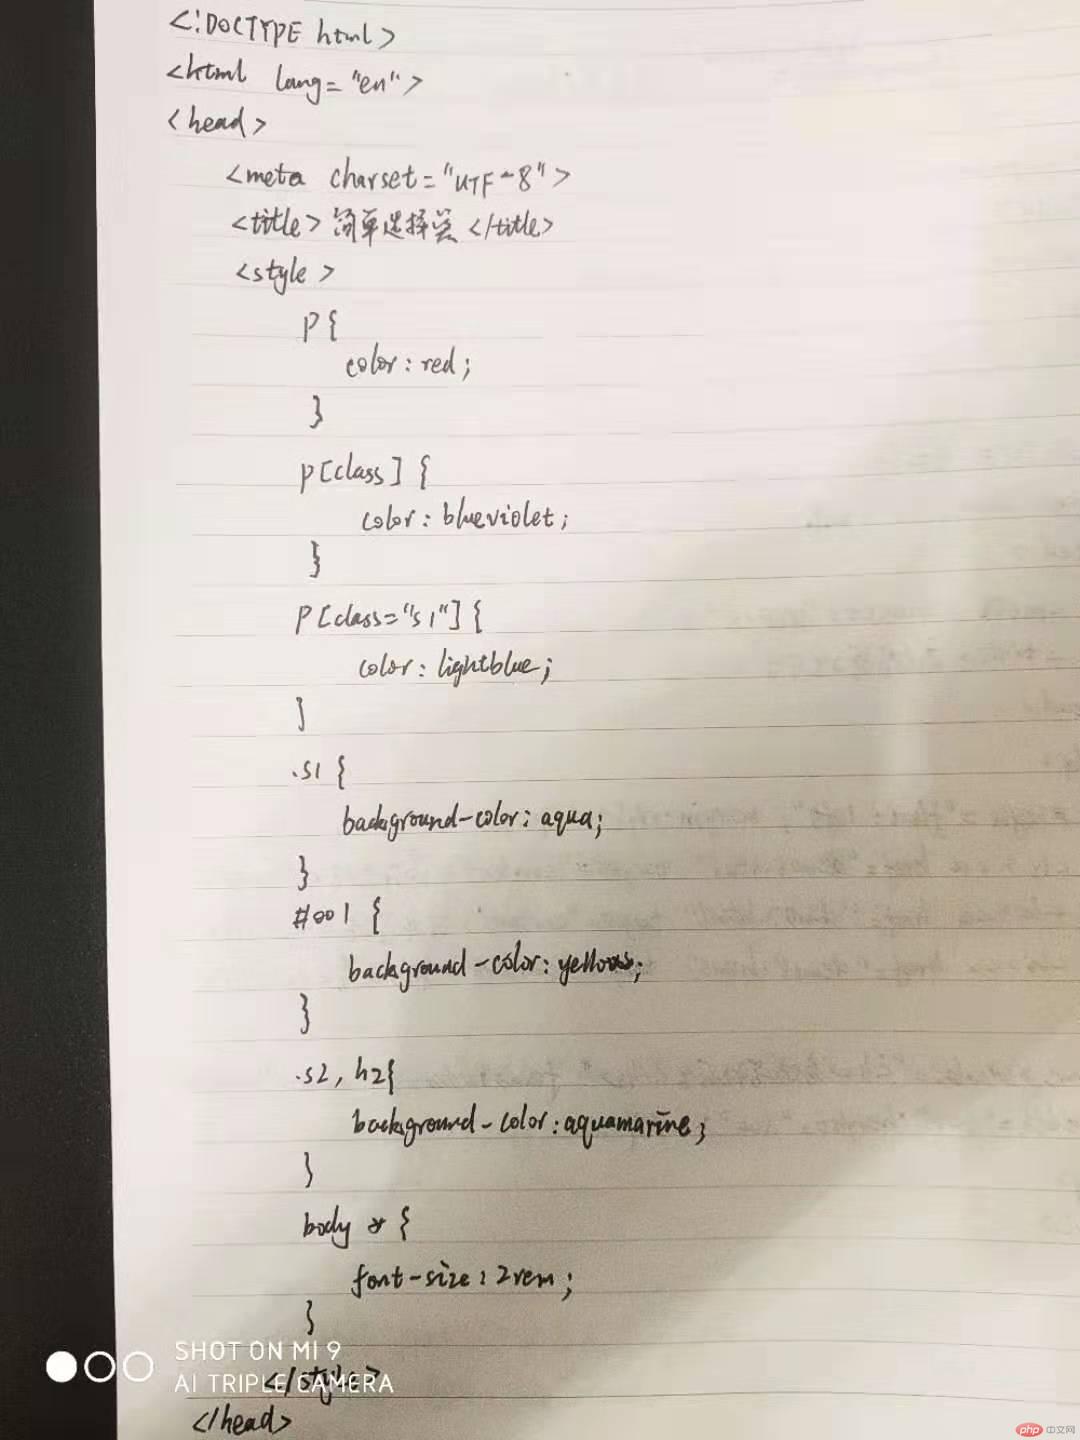 <!DOCTYPE html>
<html lang="en">
<head>
<meta charset="UTF-8">
<title>简单选择器</title>
<style>
p{
color:red;
}
p[class] {
color:blueviolet;
}
p[class="s1"]{
color:lightblue;
}
.s1 {
background-color:aqua;
}
#001 {
background-color:yellow;
}
.s2, h2{
background-color:aquamarine;
}
body * {
font-size:2rem;
}
</style>
</head>
SHOT ON MI 9
AI TRIPLE CAMERA
php 中文网